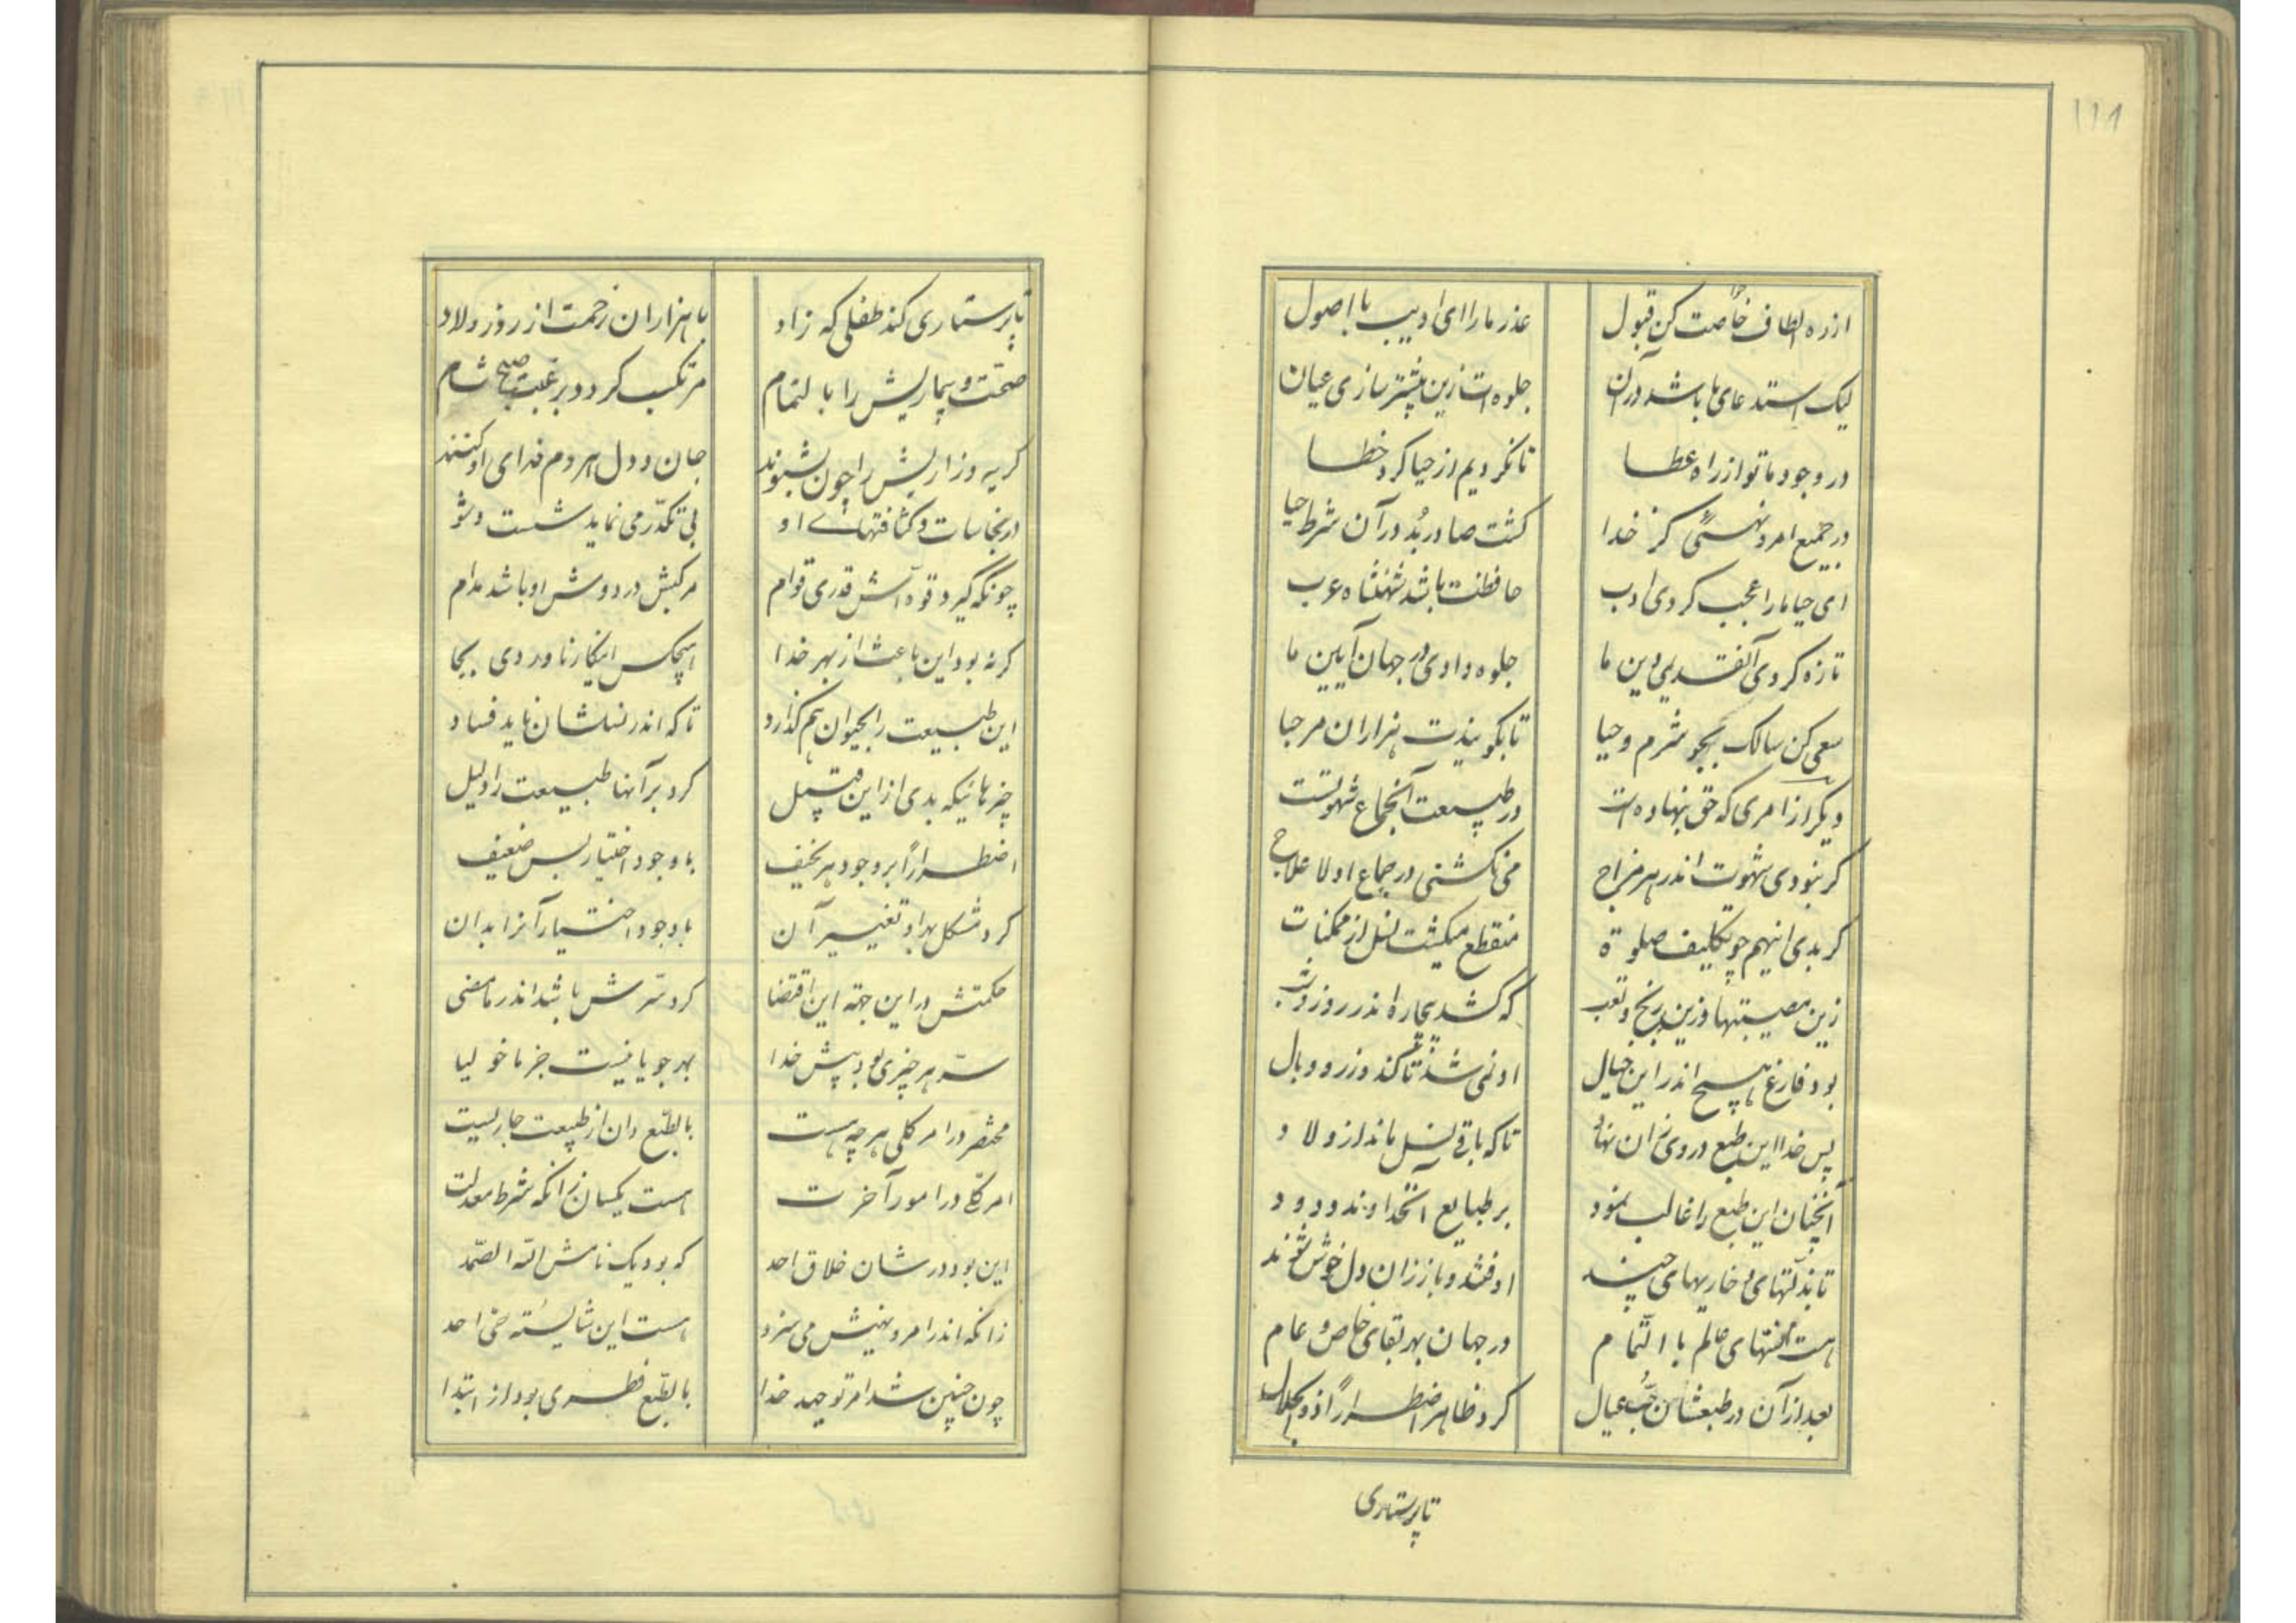 ۱۱۸
از ره الطاف خاصت کن قبول
عذر ما را ای ادیب با اصول
لیک استدعای ما باشد در آن
جلوه‌ات زین بیشتر سازی عیان
در وجود ما تو از راه عطا
تا نکردیم از حیا کرد خطا
در جمیع امر و نهیی کز خدا
کشت صادر بُد در آن شرط حیا
ای حیا ما را عجب کردی ادب
حافظت باشد شهنشاه عرب
تازه کردی آنقدر دین ما
جلوه دادی در جهان آیین ما
سعی کن سالک بجو شرم و حیا
تا بگویندت هزاران مرحبا
دیکر از امری که حق بنهاده است
در طبیعت آن جماع شهوتست
کر نبودی شهوت اندر هر مزاج
می نکشتی در جماع اولا علاج
کر بدی اینهم چو تکلیف صلوة
منقطع میکشت نسل از ممکنات
زین مصیبتها و زین رنج و تعب
که کشد بیچاره اندر روز و شب
بود فارغ هیچ اندر این خیال
او نمی شد تا کند وزر و وبال
پس خدا این طبع در وی زان نهاد
تا که باقی نسل ماند از ولاد
آنچنان این طبع را غالب نمود
بر طبایع آن خداوند ودود
تا بذلتهای خاریهای چند
اوفتند و باز زان دل خوش شوند
هست محنتهای عالم با التمام
در جهان بهر بقای خاص و عام
بعد از آن در طبعشان حُبّ عیال
کرد ظاهر اضطراراً ذو الجلال
تا پرستاری
تا پرستاری کند طفلی که زاد
با هزاران زحمت از روز ولاد
صحّت و بیماریش را با لتمام
مرتکب کردد برغبت صبح شام
کریه و زاریش را چون بشنوند
جان و دل هر دم فدای او کنند
در نجاسات و کثافتهای او
بی تکدّر می نماید شست و شو
چونکه گیرد قوه‌اش قدری قوام
مرکبش در دوش او باشد مدام
کر نه بود این باعث از بهر خدا
هیچکس اینکار ناوردی بجا
این طبیعت را بحیوان هم گذارد
تا که اندر نسلشان ناید فساد
چیزهائیکه بدی از این قبیل
کرد بر آنها طبیعت را دلیل
اضطراراً بر وجود هر نحیف
با وجود اختیار بس ضعیف
کرد مشکل بهر او تغییر آن
با وجود اختیار آنرا بدان
حکمتش در این جهة این اقتضا
کرد سّرش باشد اندر ما مضی
سرّ هر چیزی بود پیش خدا
بهر جویا نیست جز ماخولیا
مختصر در امر کلی هر چه هست
بالطّبع دان از طبیعت جاریست
امر کلی در امور آخرت
هست یکسان زانکه شرط معدلت
این بود در شان خلاق احد
که بود یک نامش الله الصّمد
زانکه اندر امر و نهیش می سزد
هست این شایسته حیّ احد
چون چنین شد امر توحید خدا
بالطّبع فطری بود از ابتدا